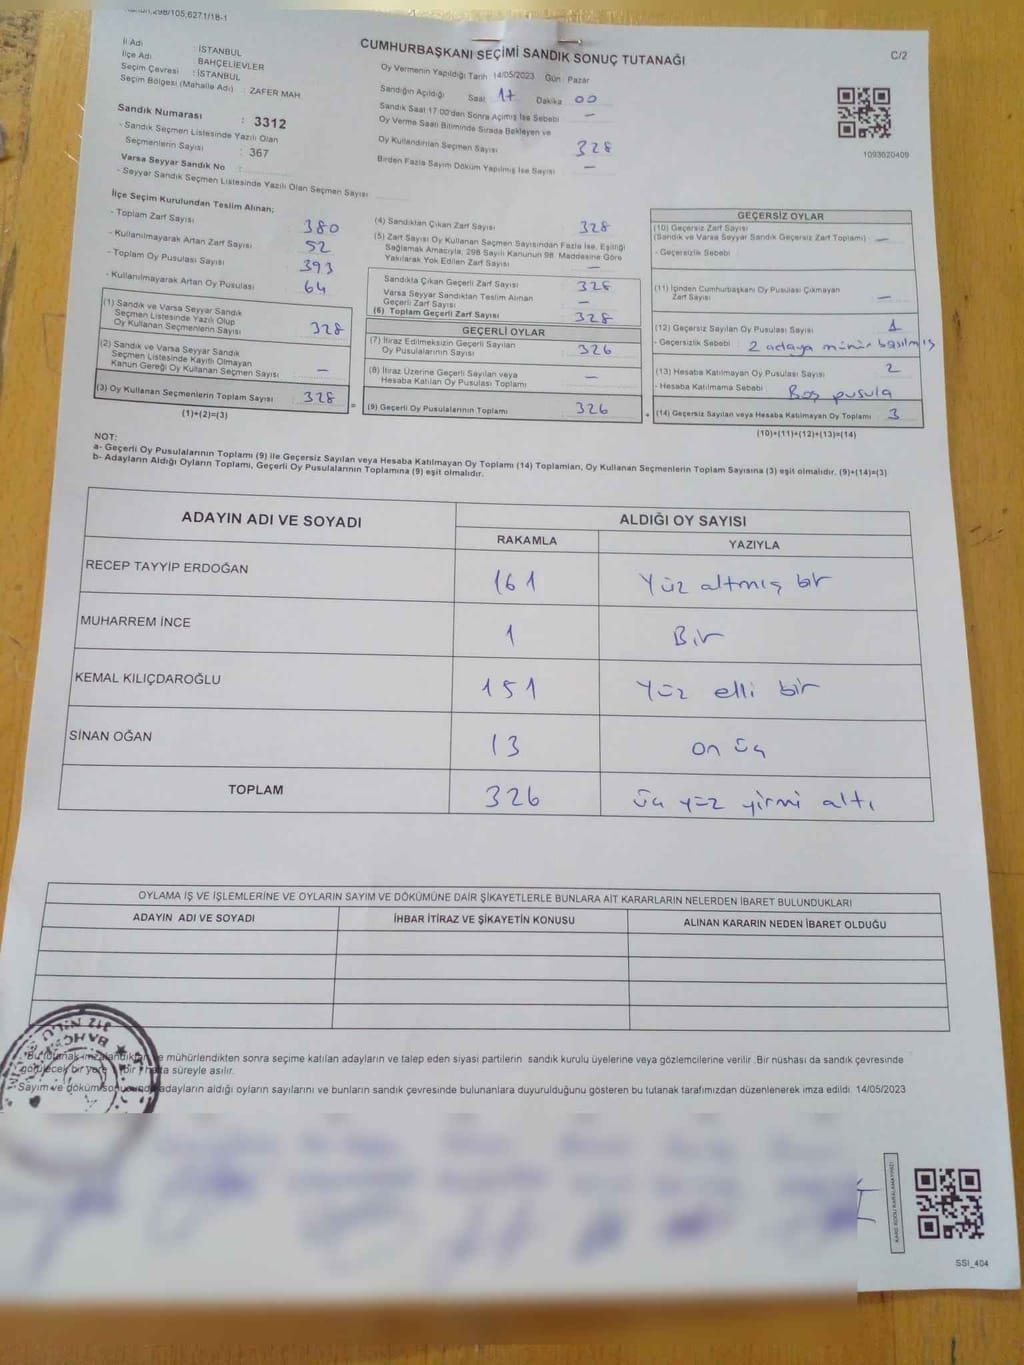 298/105;627.1/18-1
C/2
CUMHURBAŞKANI SEÇİMİ SANDIK SONUÇ TUTANAĞI
İl Adı : İSTANBUL
İlçe Adı BAHÇELİEVLER
Seçim Çevresi : İSTANBUL
Seçim Bölgesi (Mahalle Adı) : ZAFER MAH.
Sandık Numarası : 3312
- Sandık Seçmen Listesinde Yazılı Olan
Seçmenlerin Sayısı : 367
Varsa Seyyar Sandık No :
- Seyyar Sandık Seçmen Listesinde Yazılı Olan Seçmen Sayısı
Oy Vermenin Yapıldığı Tarih 14/05/2023 Gün : Pazar
Sandığın Açıldığı Saat 17 Dakika 00
Sandık Saat 17:00'den Sonra Açılmış İse Sebebi –
Oy Verme Saati Bitiminde Sırada Bekleyen ve
Oy Kullandırılan Seçmen Sayısı 328
Birden Fazla Sayım Döküm Yapılmış İse Sayısı –
1093620409
İlçe Seçim Kurulundan Teslim Alınan;
- Toplam Zarf Sayısı 380
- Kullanılmayarak Artan Zarf Sayısı 52
- Toplam Oy Pusulası Sayısı 393
- Kullanılmayarak Artan Oy Pusulası 64
(1) Sandık ve Varsa Seyyar Sandık
Seçmen Listesinde Yazılı Olup
Oy Kullanan Seçmenlerin Sayısı 328
(2) Sandık ve Varsa Seyyar Sandık
Seçmen Listesinde Kayıtlı Olmayan
Kanun Gereği Oy Kullanan Seçmen Sayısı –
(3) Oy Kullanan Seçmenlerin Toplam Sayısı 328
(1)+(2)=(3)
=
(4) Sandıktan Çıkan Zarf Sayısı 328
(5) Zarf Sayısı Oy Kullanan Seçmen Sayısından Fazla İse, Eşitliği
Sağlamak Amacıyla, 298 Sayılı Kanunun 98. Maddesine Göre
Yakılarak Yok Edilen Zarf Sayısı –
Sandıkta Çıkan Geçerli Zarf Sayısı 328
Varsa Seyyar Sandıktan Teslim Alınan
Geçerli Zarf Sayısı –
(6) Toplam Geçerli Zarf Sayısı 328
GEÇERLİ OYLAR
(7) İtiraz Edilmeksizin Geçerli Sayılan
Oy Pusulalarının Sayısı 326
(8) İtiraz Üzerine Geçerli Sayılan veya
Hesaba Katılan Oy Pusulası Toplamı –
(9) Geçerli Oy Pusulalarının Toplamı 326
+
GEÇERSİZ OYLAR
(10) Geçersiz Zarf Sayısı
(Sandık ve Varsa Seyyar Sandık Geçersiz Zarf Toplamı) : –
- Geçersizlik Sebebi :
(11) İçinden Cumhurbaşkanı Oy Pusulası Çıkmayan
Zarf Sayısı –
(12) Geçersiz Sayılan Oy Pusulası Sayısı : 1
- Geçersizlik Sebebi : 2 adaya mühür basılmış
(13) Hesaba Katılmayan Oy Pusulası Sayısı : 2
- Hesaba Katılmama Sebebi : Boş pusula
(14) Geçersiz Sayılan veya Hesaba Katılmayan Oy Toplamı : 3
(10)+(11)+(12)+(13)=(14)
NOT:
a- Geçerli Oy Pusulalarının Toplamı (9) ile Geçersiz Sayılan veya Hesaba Katılmayan Oy Toplamı (14) Toplamları, Oy Kullanan Seçmenlerin Toplam Sayısına (3) eşit olmalıdır. (9)+(14)=(3)
b- Adayların Aldığı Oyların Toplamı, Geçerli Oy Pusulalarının Toplamına (9) eşit olmalıdır.
ADAYIN ADI VE SOYADI ALDIĞI OY SAYISI
RAKAMLA YAZIYLA
RECEP TAYYİP ERDOĞAN 161 Yüz altmış bir
MUHARREM İNCE 1 Bir
KEMAL KILIÇDAROĞLU 151 Yüz elli bir
SİNAN OĞAN 13 on üç
TOPLAM 326 üç yüz yirmi altı
OYLAMA İŞ VE İŞLEMLERİNE VE OYLARIN SAYIM VE DÖKÜMÜNE DAİR ŞİKAYETLERLE BUNLARA AİT KARARLARIN NELERDEN İBARET BULUNDUKLARI
ADAYIN ADI VE SOYADI İHBAR İTİRAZ VE ŞİKAYETİN KONUSU ALINAN KARARIN NEDEN İBARET OLDUĞU
Bu tutanak imzalandıktan ve mühürlendikten sonra seçime katılan adayların ve talep eden siyasi partilerin sandık kurulu üyelerine veya gözlemcilerine verilir. Bir nüshası da sandık çevresinde
görülecek bir yere bir hafta süreyle asılır.
Sayım ve döküm sonucunda adayların aldığı oyların sayılarını ve bunların sandık çevresinde bulunanlara duyurulduğunu gösteren bu tutanak tarafımızdan düzenlenerek imza edildi. 14/05/2023
KARE KODU KARALAMAYINIZ!
SSI_404